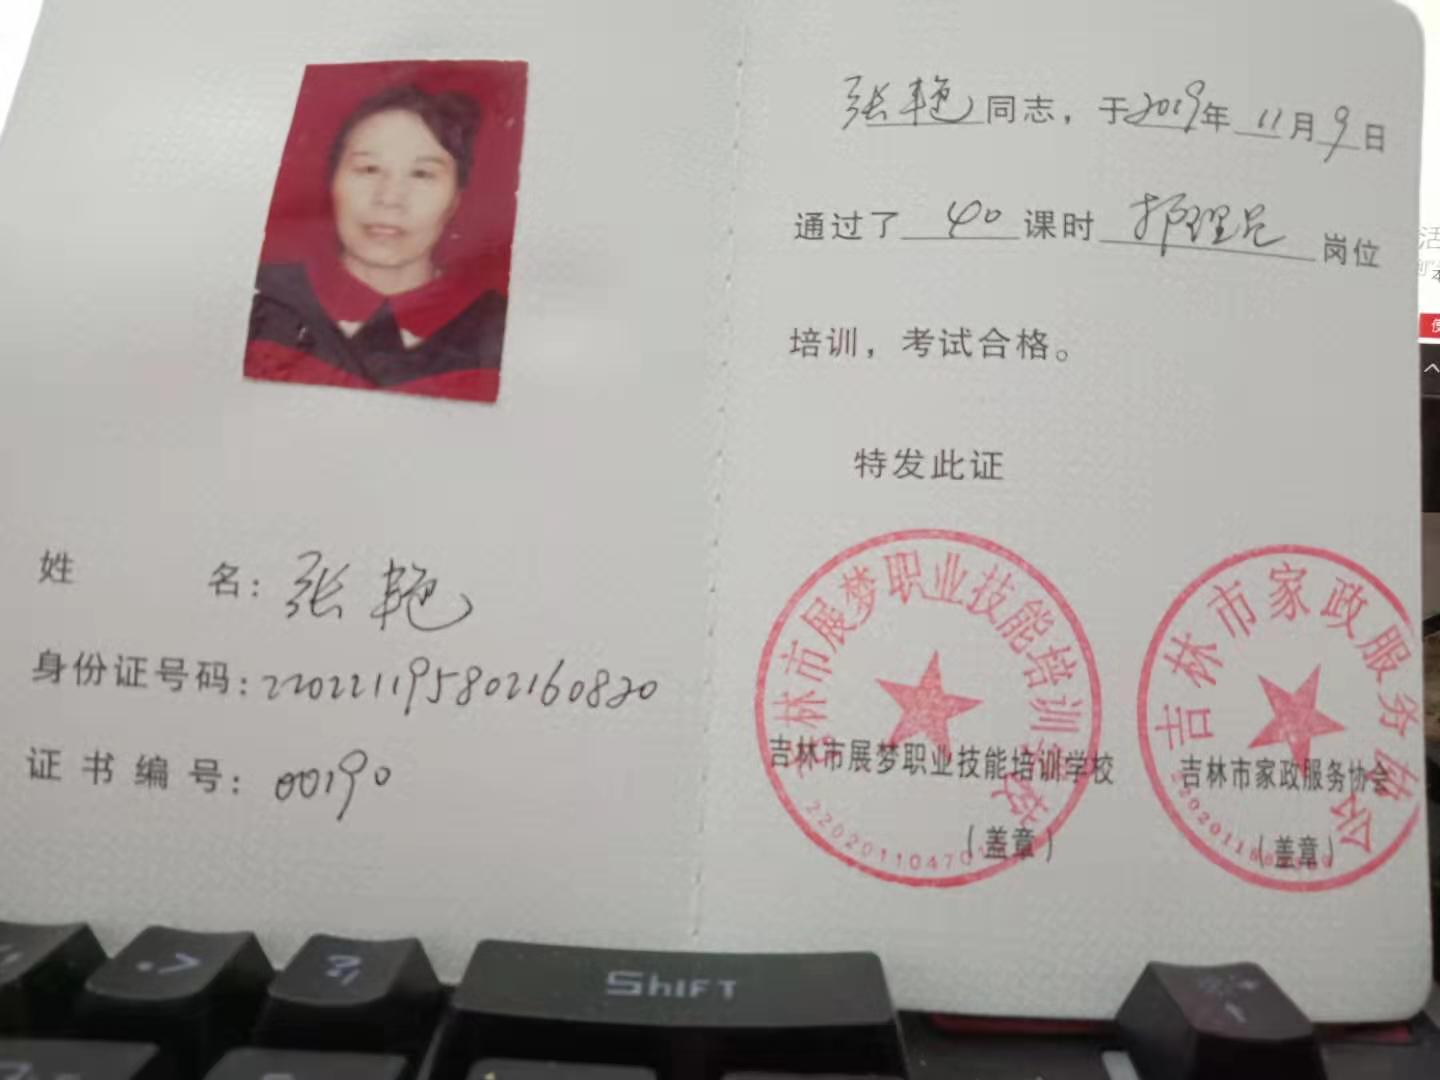 姓 名：张艳
身份证号码：220221195802160820
证书编号：00190
张艳同志，于2019年11月9日
通过了40课时护理员岗位
培训，考试合格。
特发此证
吉林市展梦职业技能培训学校
吉林市展梦职业技能培训学校
（盖章）
吉林市家政服务协会
吉林市家政服务协会
（盖章）
SHIFT